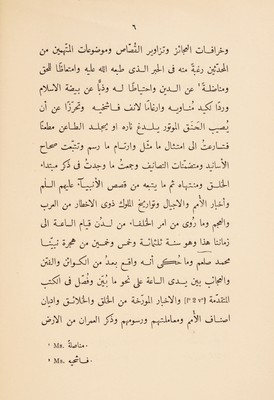 ٦
وخرافات العجائز وتزاوير القُصّاص وموضوعات المتّهمين من
المحدّثين رغبةً منه فى الخير الذى طبعه الله عليه وامتعاظًا للحق
ومناضلةً¹ عن الدين واحتياطًا له وذبًّا عن بيضة الاسلام
وردًّا لكيد مُناويه وارغامًا لانف شانئيه وتحرّزًا عن أن
يُصيب الحَنَق الموتور بلدغ ناره او يجد الطاعن مطعنًا
فتسارعتُ الى امتثال ما مثّل وارتسام ما رسم وتتبّعت صحاح
الأسانيد ومتضمّنات التصانيف وجمعتُ ما وجدتُ فى ذكر مبتداء
الخلق ومنتهاه ثم ما يتبعه من قصص الأنبيآء عليهم السلم
وأخبار الأُمم والاجيال وتواريخ الملوك ذوى الاخطار من العرب
والعجم وما رُوى من امر الخلفاء من لدُن قيام الساعة الى
زماننا هذا وهو سنة ثلثمائة وخمس وخمسين من هجرة نبيّنا
محمد صلعم وما حُكى أنه واقع بعدُ من الكوائن والفتن
والعجائب بين يدى الساعة على نحو ما بُيّن وفُصّل فى الكتب
المتقدّمة [f° 2 v°] والاخبار المورّخة من الخلق والخلائق واديان
اصناف الأُمم ومعاملتهم ورسومهم وذكر العمران من الارض
¹ Ms. مناصلة.